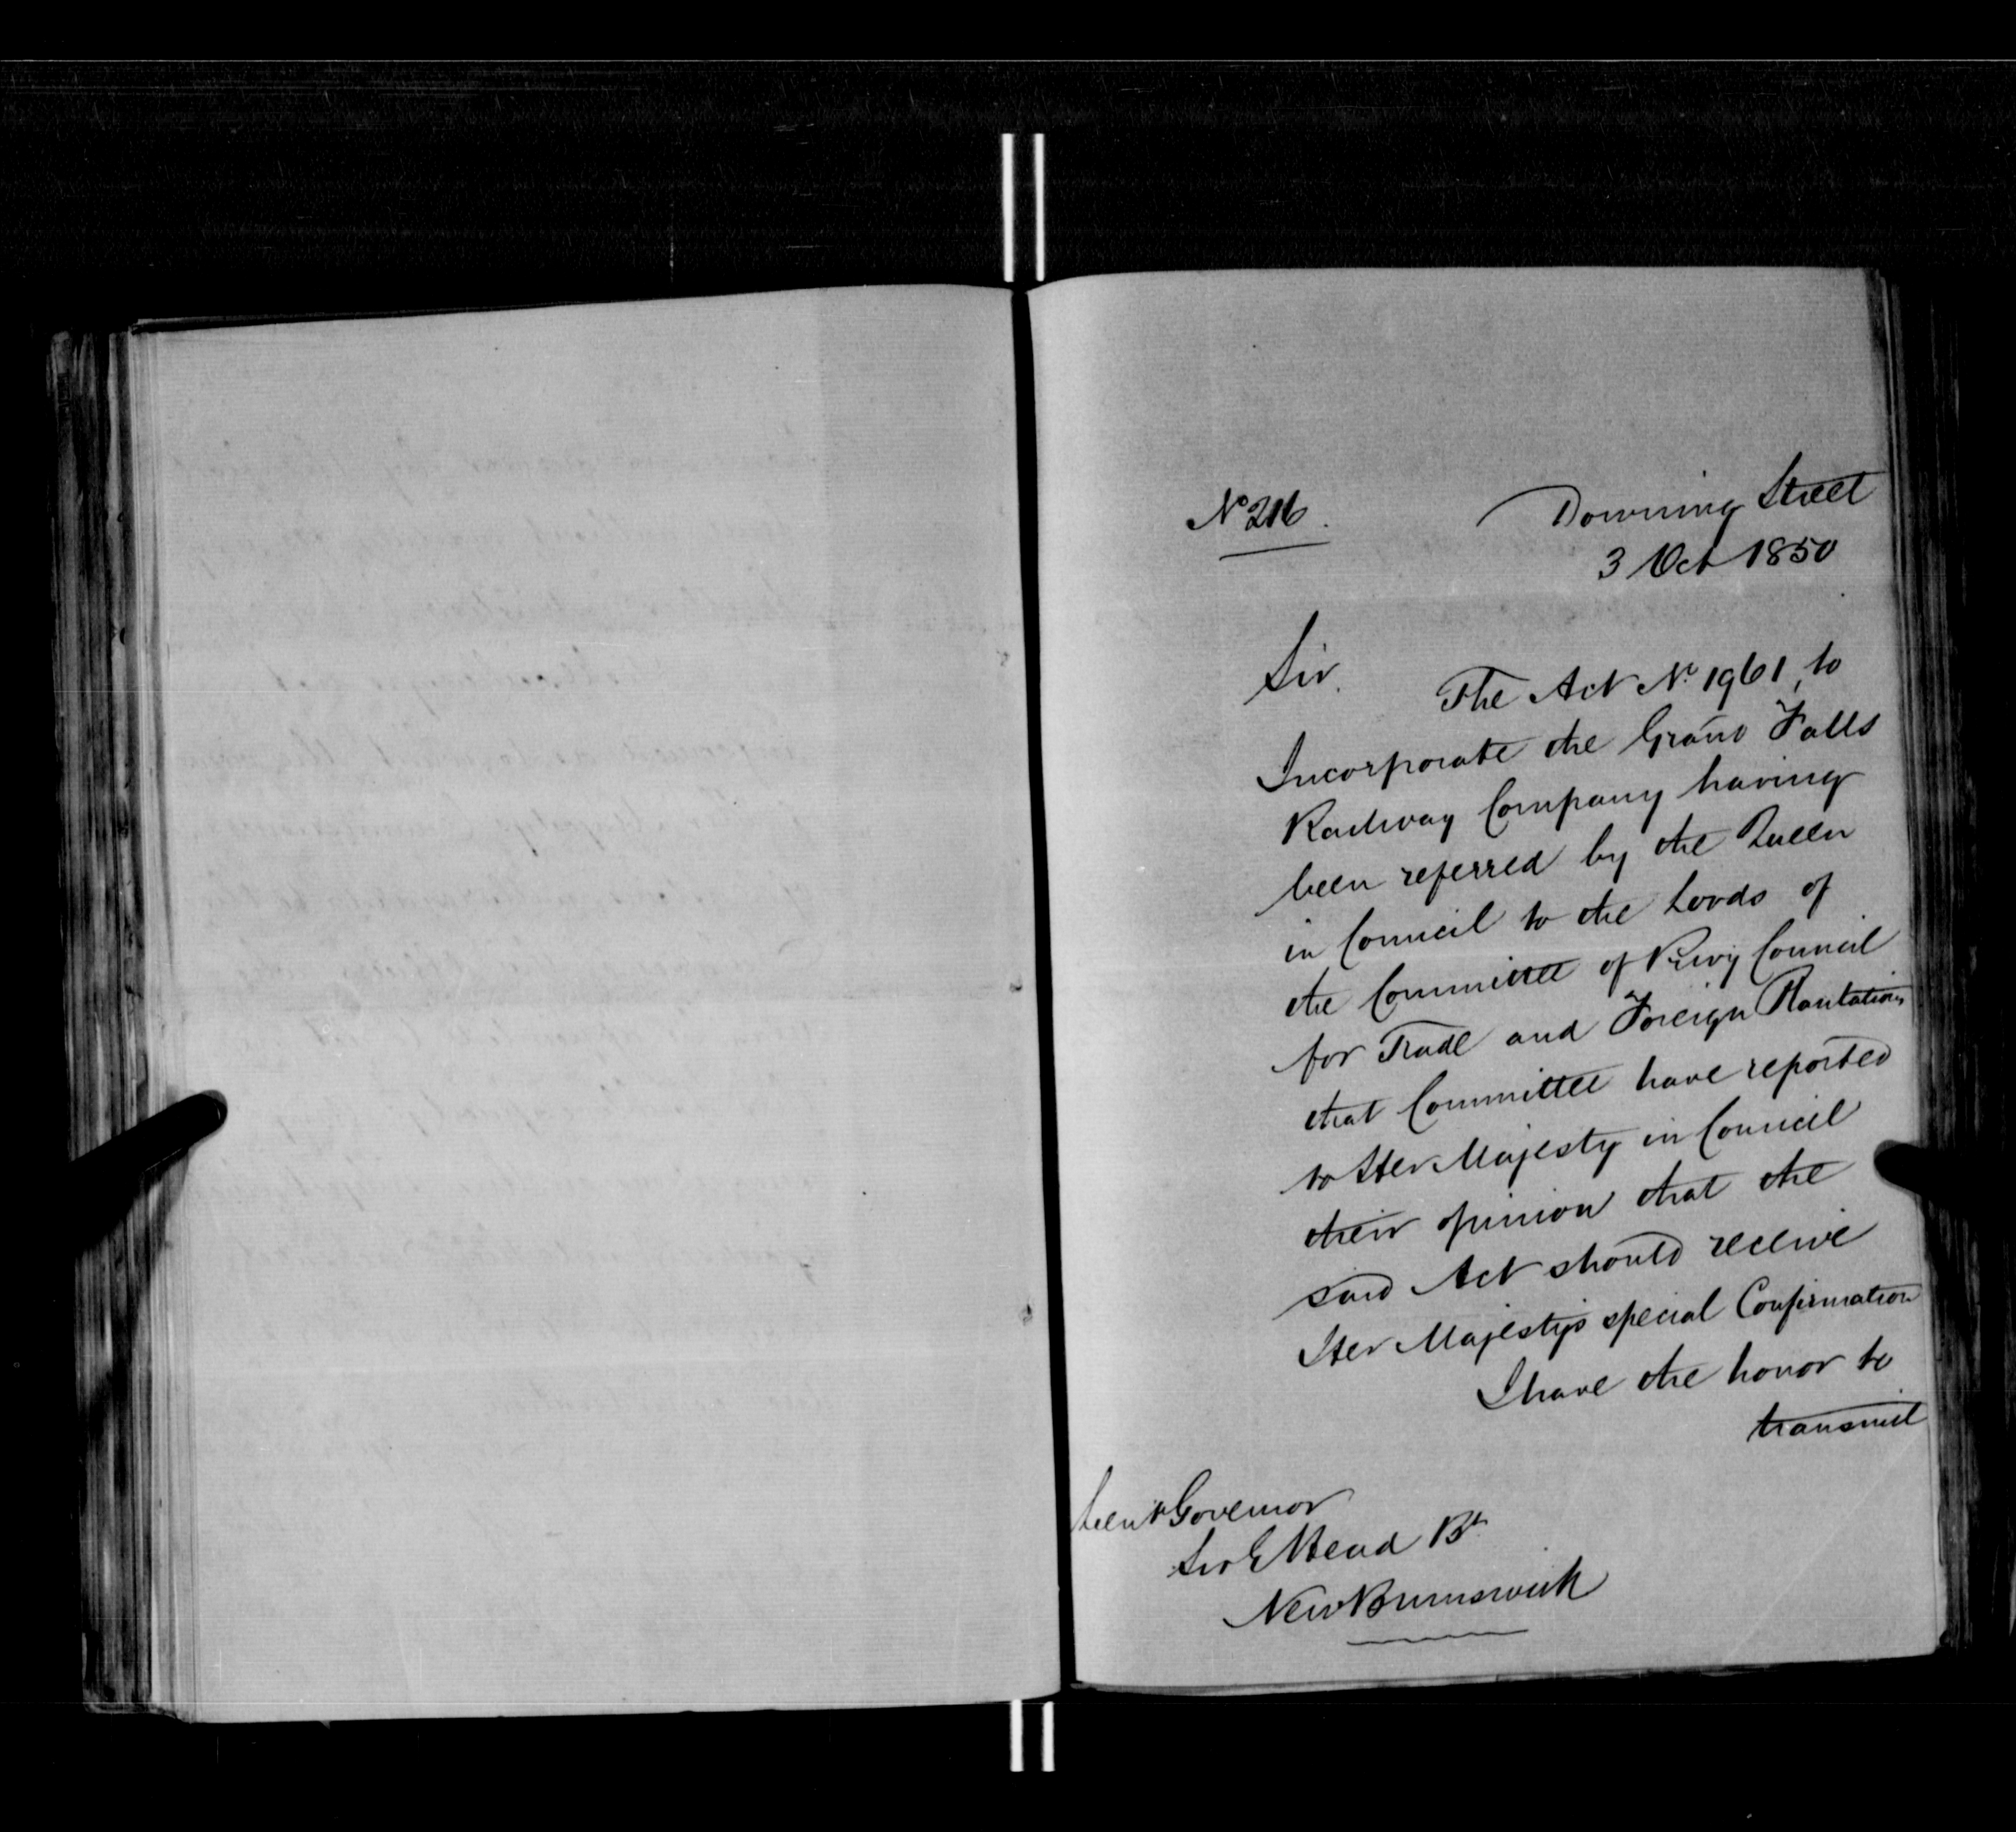 No 216.
Downing Street
3 Oct 1850
Sir.
The Act No. 1961, to
Incorporate the Grand Falls
Railway Company having
been referred by the Queen
in Council to the Lords of
the Committee of Privy Council
for Trade and Foreign Plantations
that Committee have reported
to Her Majesty in Council
their opinion that the
said Act should receive
Her Majesty's special Confirmation
I have the honor to
transmit
Lieut Governor
Sir E Head Bt
New Brunswick